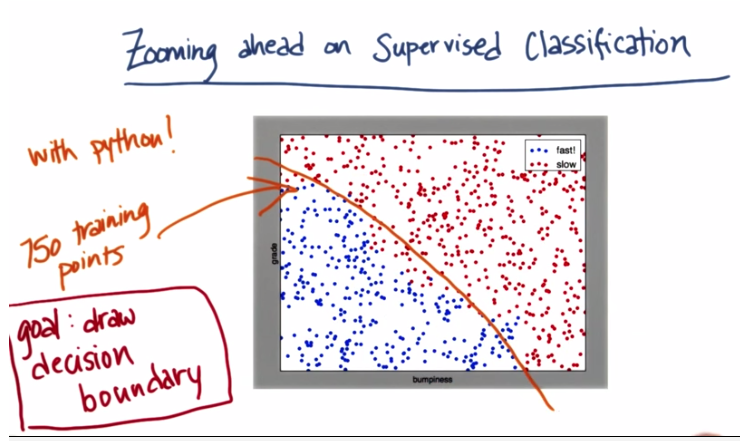 Zooming ahead on Supervised Classification
with python!
750 training
points
goal: draw
decision
boundary
fast!
slow
grade
bumpiness